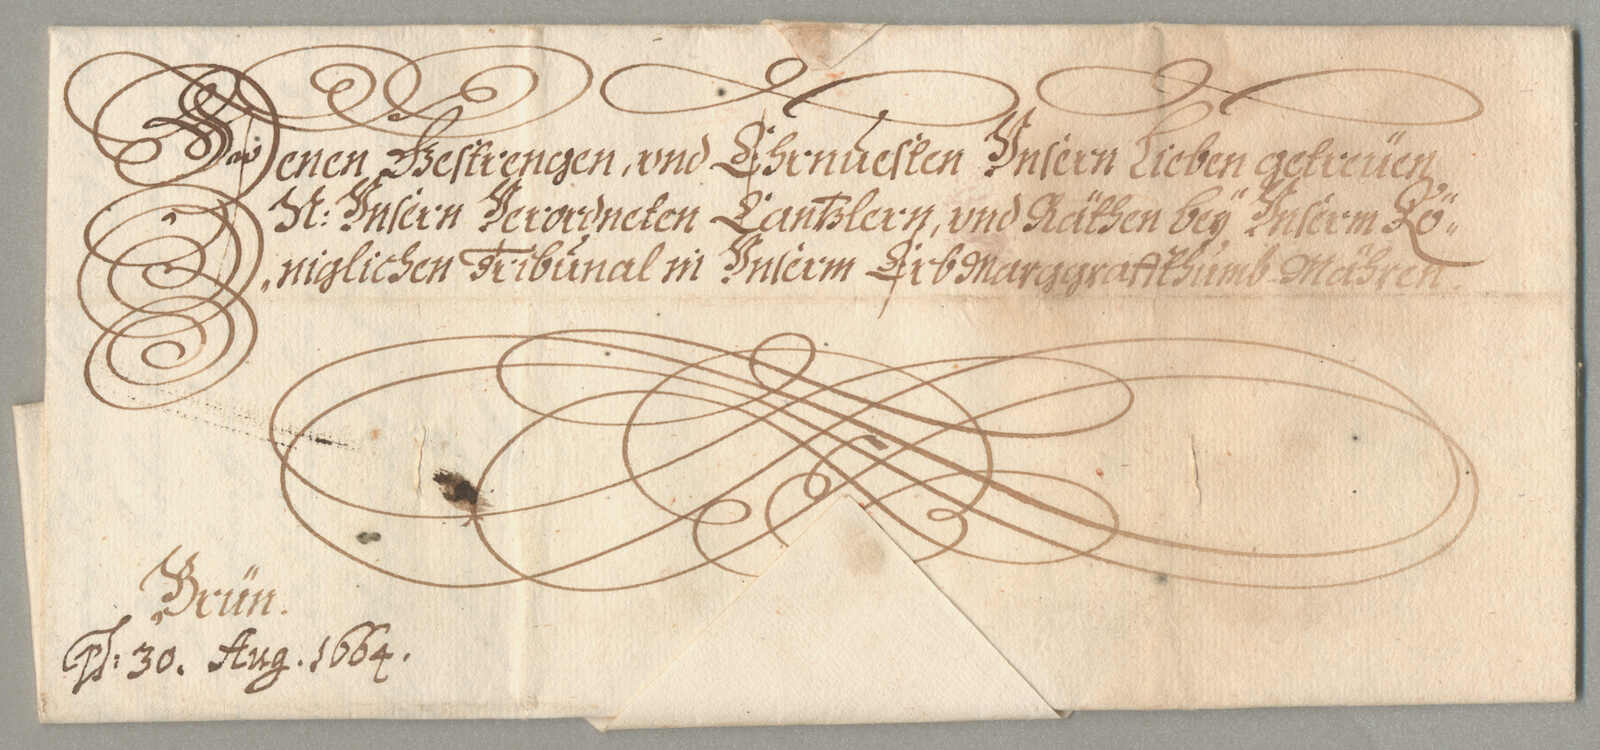 Denen Gestrengen, vnd Ehrnuesten Vnsern Lieben getreüen
N: Vnsern Verordneten Cantzlern, vnd Räthen beÿ Vnserm Kö„
„niglichen Tribunal in Vnserm Erb Marggraffthumb Mähren.
Brün.
ps: 30. Aug. 1664.